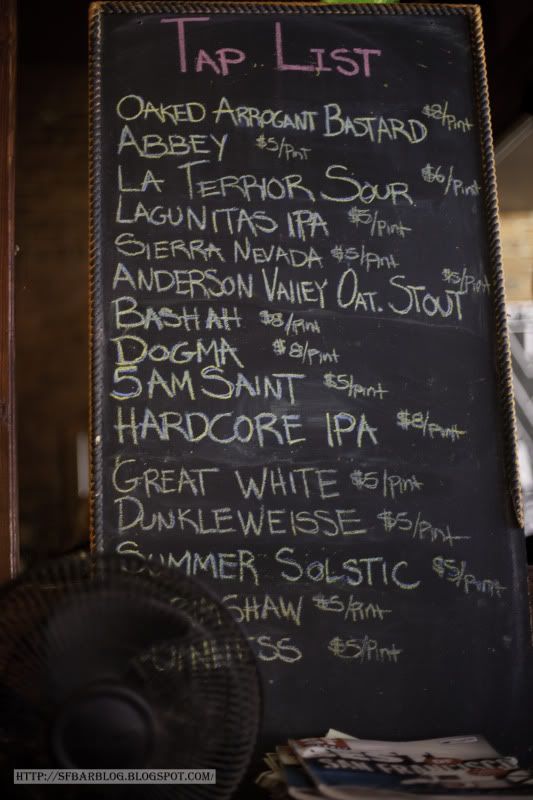 TAP LIST
OAKED ARROGANT BASTARD $8/Pint
ABBEY $5/Pint
LA TERRIOR SOUR $6/Pint
LAGUNITAS IPA $5/Pint
SIERRA NEVADA $5/Pint
ANDERSON VALLEY OAT. STOUT $5/Pint
BASHAH $8/Pint
DOGMA $8/Pint
5AM SAINT $5/Pint
HARDCORE IPA $8/Pint
GREAT WHITE $5/Pint
DUNKLEWEISSE $5/Pint
SUMMER SOLSTIC $5/Pint
SHAW $5/Pint
$5/Pint
SAN FRANCISCO
HTTP://SFBARBLOG.BLOGSPOT.COM/